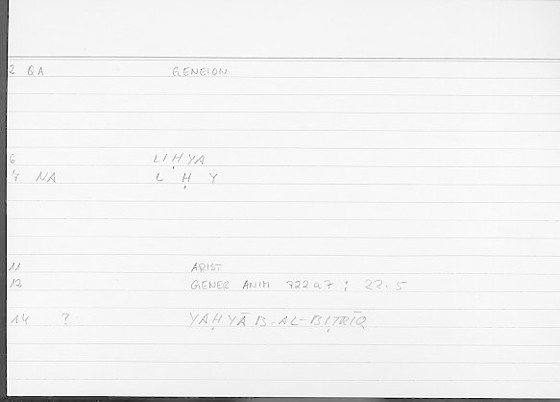 2 GA GENEION
6 LIḤYA
7 NA L Ḥ Y
11 ARIST
12 GENER ANIM 722a7 ; 22.5
14 ? YAḤYĀ B. AL-BIṬRĪQ